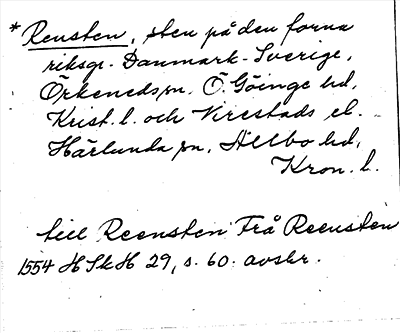 * Rensten, sten på den forna
riksgr. Danmark-Sverige,
Örkeneds sn, Ö. Göinge hd,
Krist. l. och Virestads el.
Härlunda sn, Allbo hd,
Kron. l.
till Reensten Frå Reensten
1554 HSkH 29, s. 60. avskr.